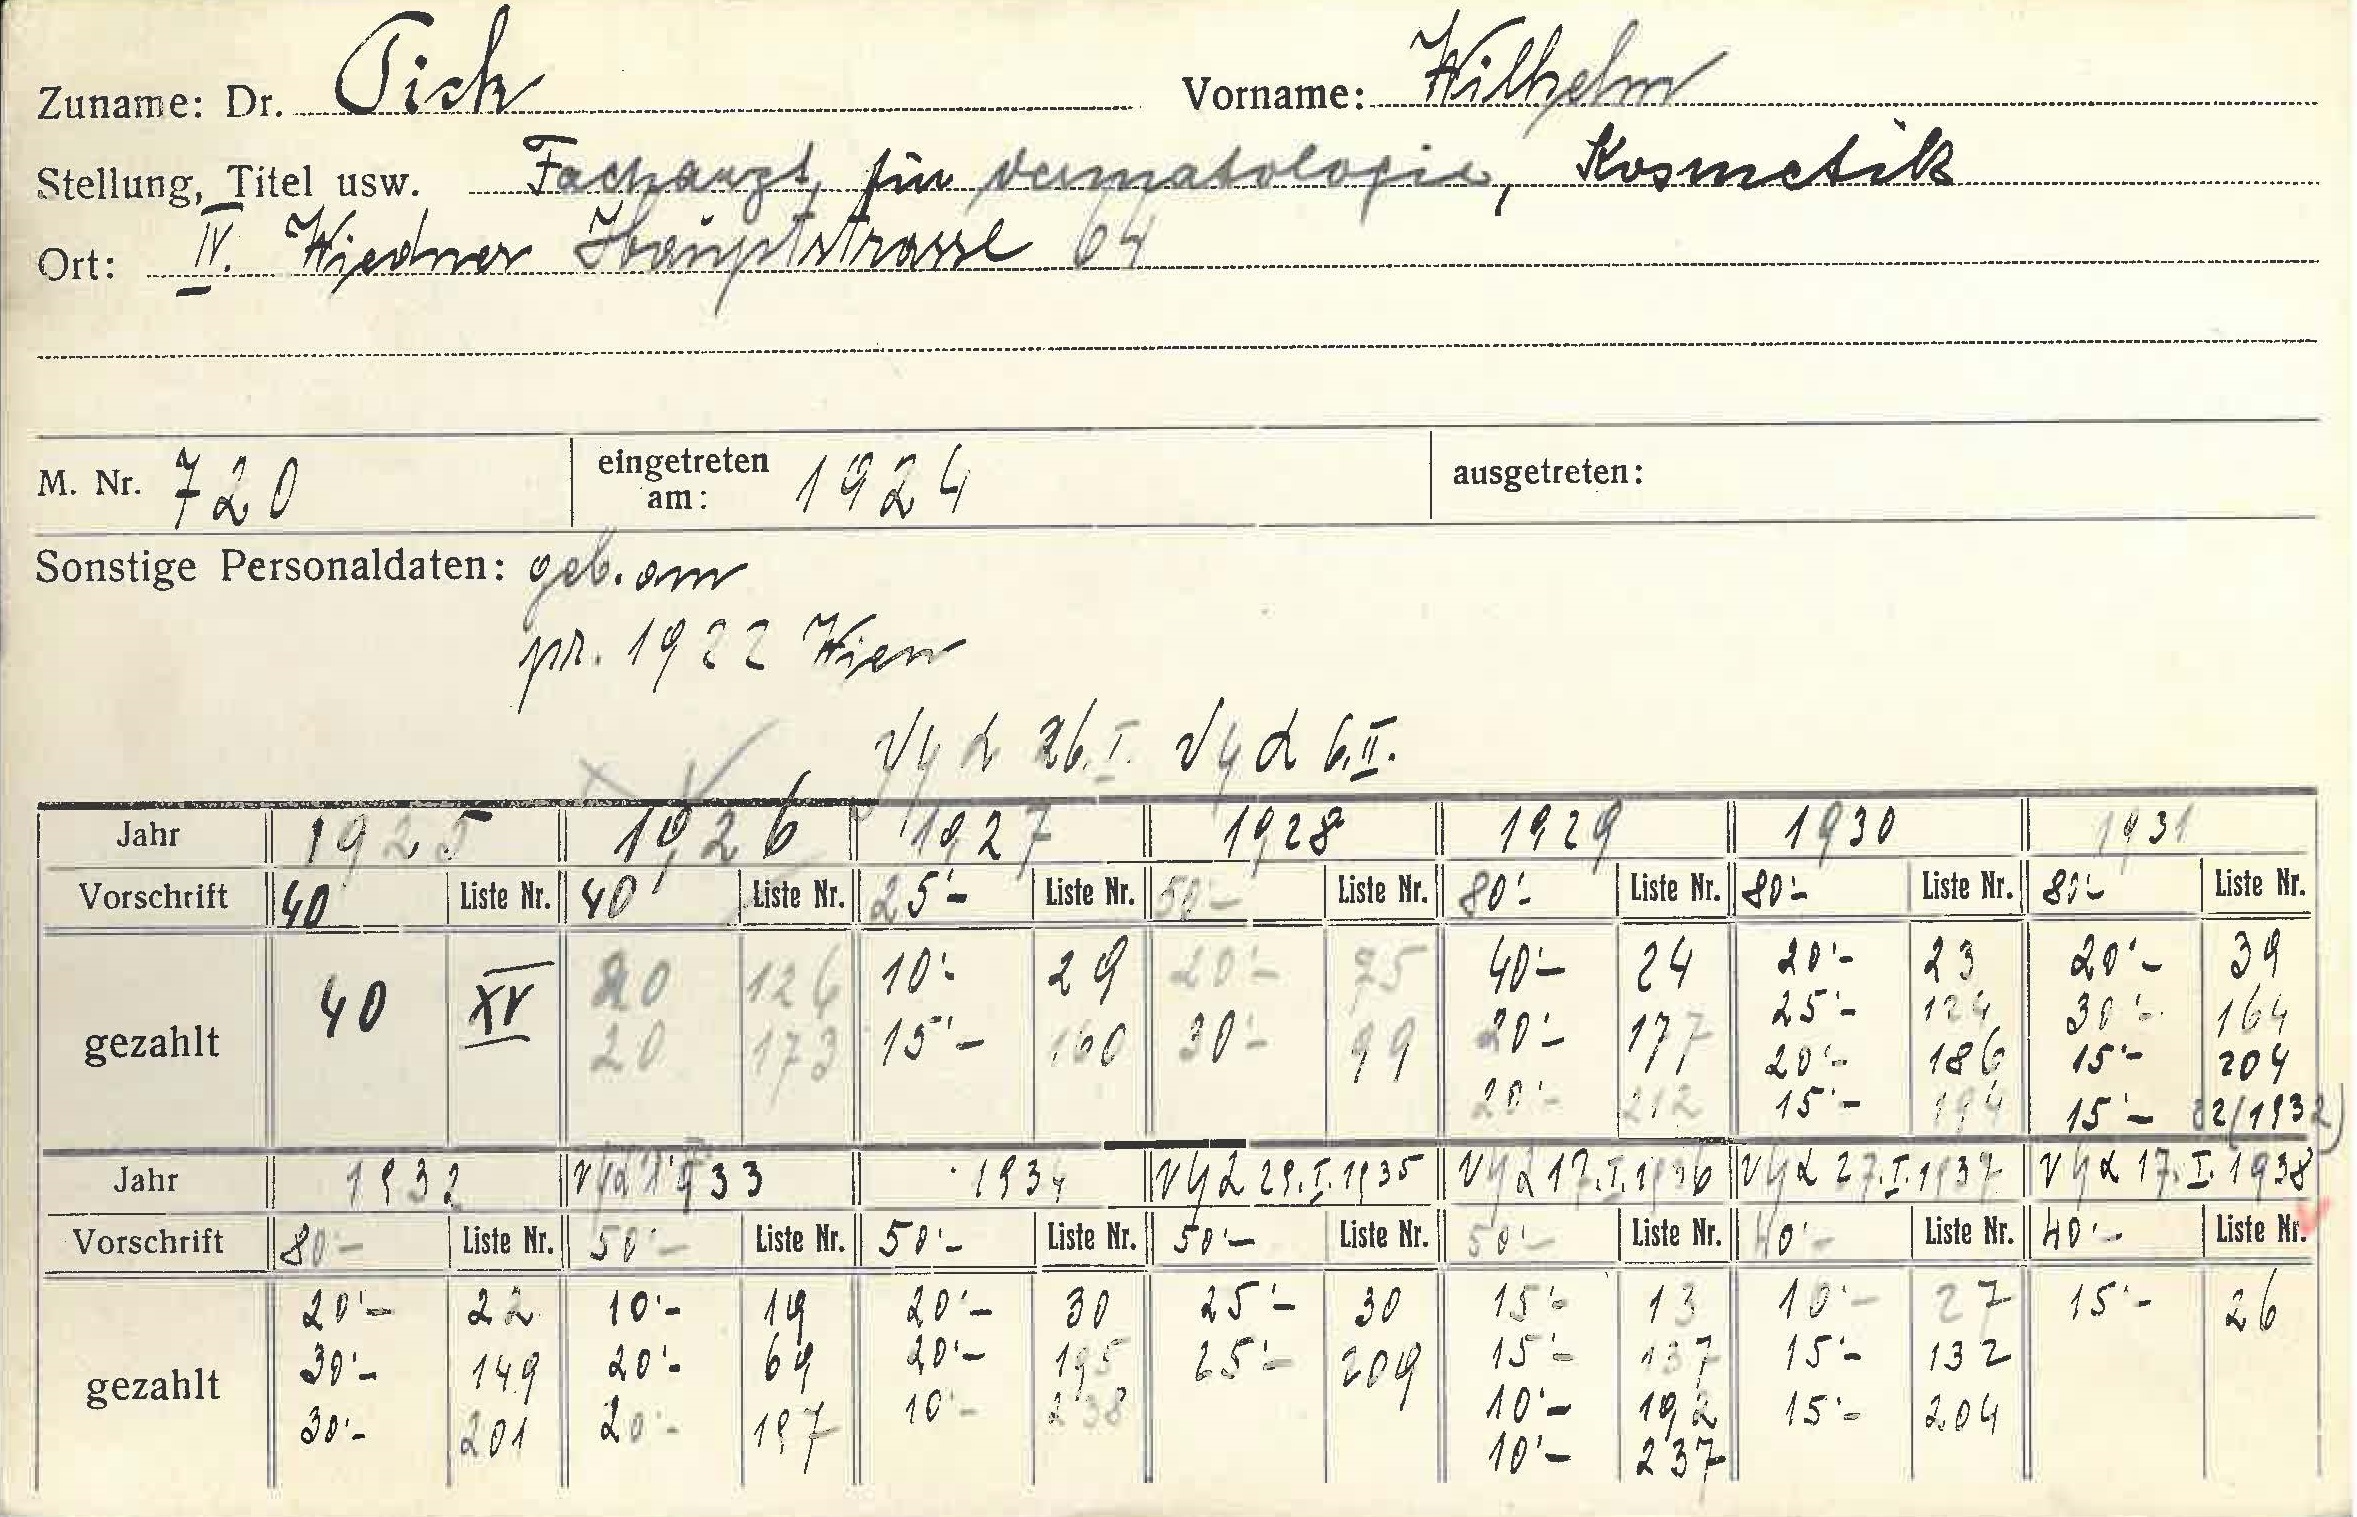 Zuname: Dr. Pick Vorname: Wilhelm
Stellung, Titel usw. Facharzt für Dermatologie, Kosmetik
Ort: IV. Wiedner Hauptstrasse 64
M. Nr. 720 eingetreten am: 1924 ausgetreten:
Sonstige Personaldaten: geb. am
pr. 1922 Wien
26.I. 6.II.
Jahr 1925 1926 1927 1928 1929 1930 1931
Vorschrift 40 Liste Nr. 40 Liste Nr. 25'- Liste Nr. 50'- Liste Nr. 80'- Liste Nr. 80'- Liste Nr. 80'- Liste Nr.
gezahlt 40 XV 20 126 10'- 29 20'- 75 40'- 24 20'- 23 20'- 39
25'- 124 30'- 164
20 173 15'- 160 30'- 99 20'- 177 20'- 186 15'- 204
20'- 212 15'- 194 15'- 22/1932)
Jahr 1932 1933 1934 29.I.1935 17.I.1936 27.I.1937 17.I.1938
Vorschrift 80'- Liste Nr. 50'- Liste Nr. 50'- Liste Nr. 50'- Liste Nr. 50'- Liste Nr. 40'- Liste Nr. 40'- Liste Nr.
gezahlt 20'- 22 10'- 19 20'- 30 25'- 30 15'- 13 10'- 27 15'- 26
30'- 149 20'- 69 20'- 195 25'- 209 15'- 137 15'- 132
30'- 201 20'- 197 10'- 238 10'- 192 15'- 204
10'- 237